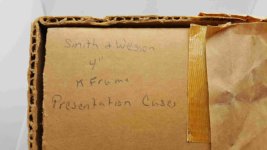 Smith & Wesson
4"
K Frame
Presentation Cases